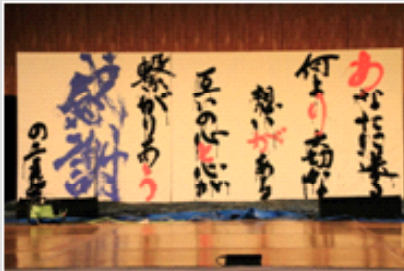 あなたに送る
何より大切な
想いがある
互いの心と心が
繋がりあう
感謝
の言葉